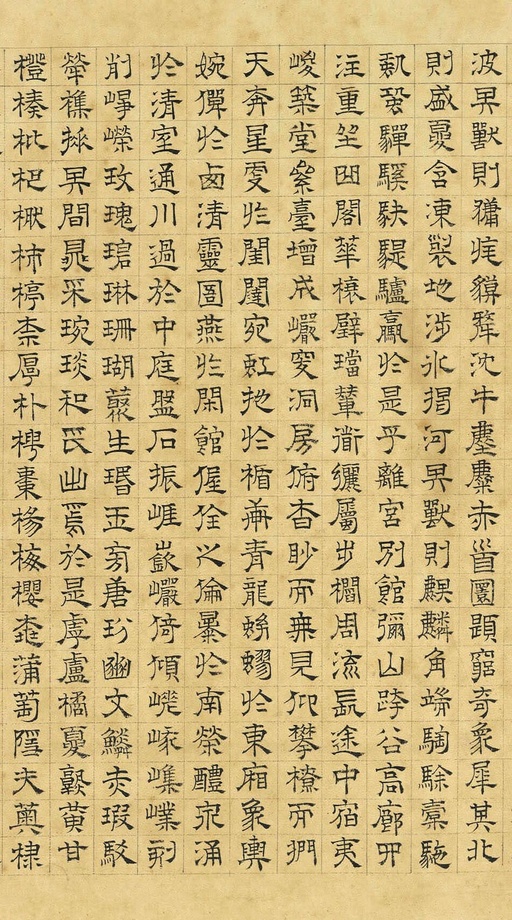 波其獸則㺎旄貘犛沈牛麈麋赤首圜題窮奇象犀其北
則盛夏含凍裂地涉冰揭河其獸則麒麟角端騊駼橐駞
蛩蛩驒騱駃騠驢驘於是乎離宮別館彌山跨谷高廊四
注重坐曲閣華榱璧璫輦道纚屬步櫩周流長途中宿夷
嵏築堂絫臺增成巖窔洞房俯杳眇而無見仰攀橑而捫
天奔星更於閨闥宛虹扡於楯軒青龍蚴蟉於東廂象輿
婉僤於西清靈圄燕於閒館偓佺之倫暴於南榮醴泉涌
於清室通川過於中庭盤石振崖嶔巖倚傾嵯峨㠎嶫刻
削崢嶸玫瑰碧琳珊瑚叢生瑉玉旁唐玢豳文鱗赤瑕駁
犖雜臿其間晁采琬琰和氏出焉於是虖盧橘夏孰黃甘
橙楱枇杷橪柿楟柰厚朴梬棗楊梅櫻桃蒲萄隱夫薁棣